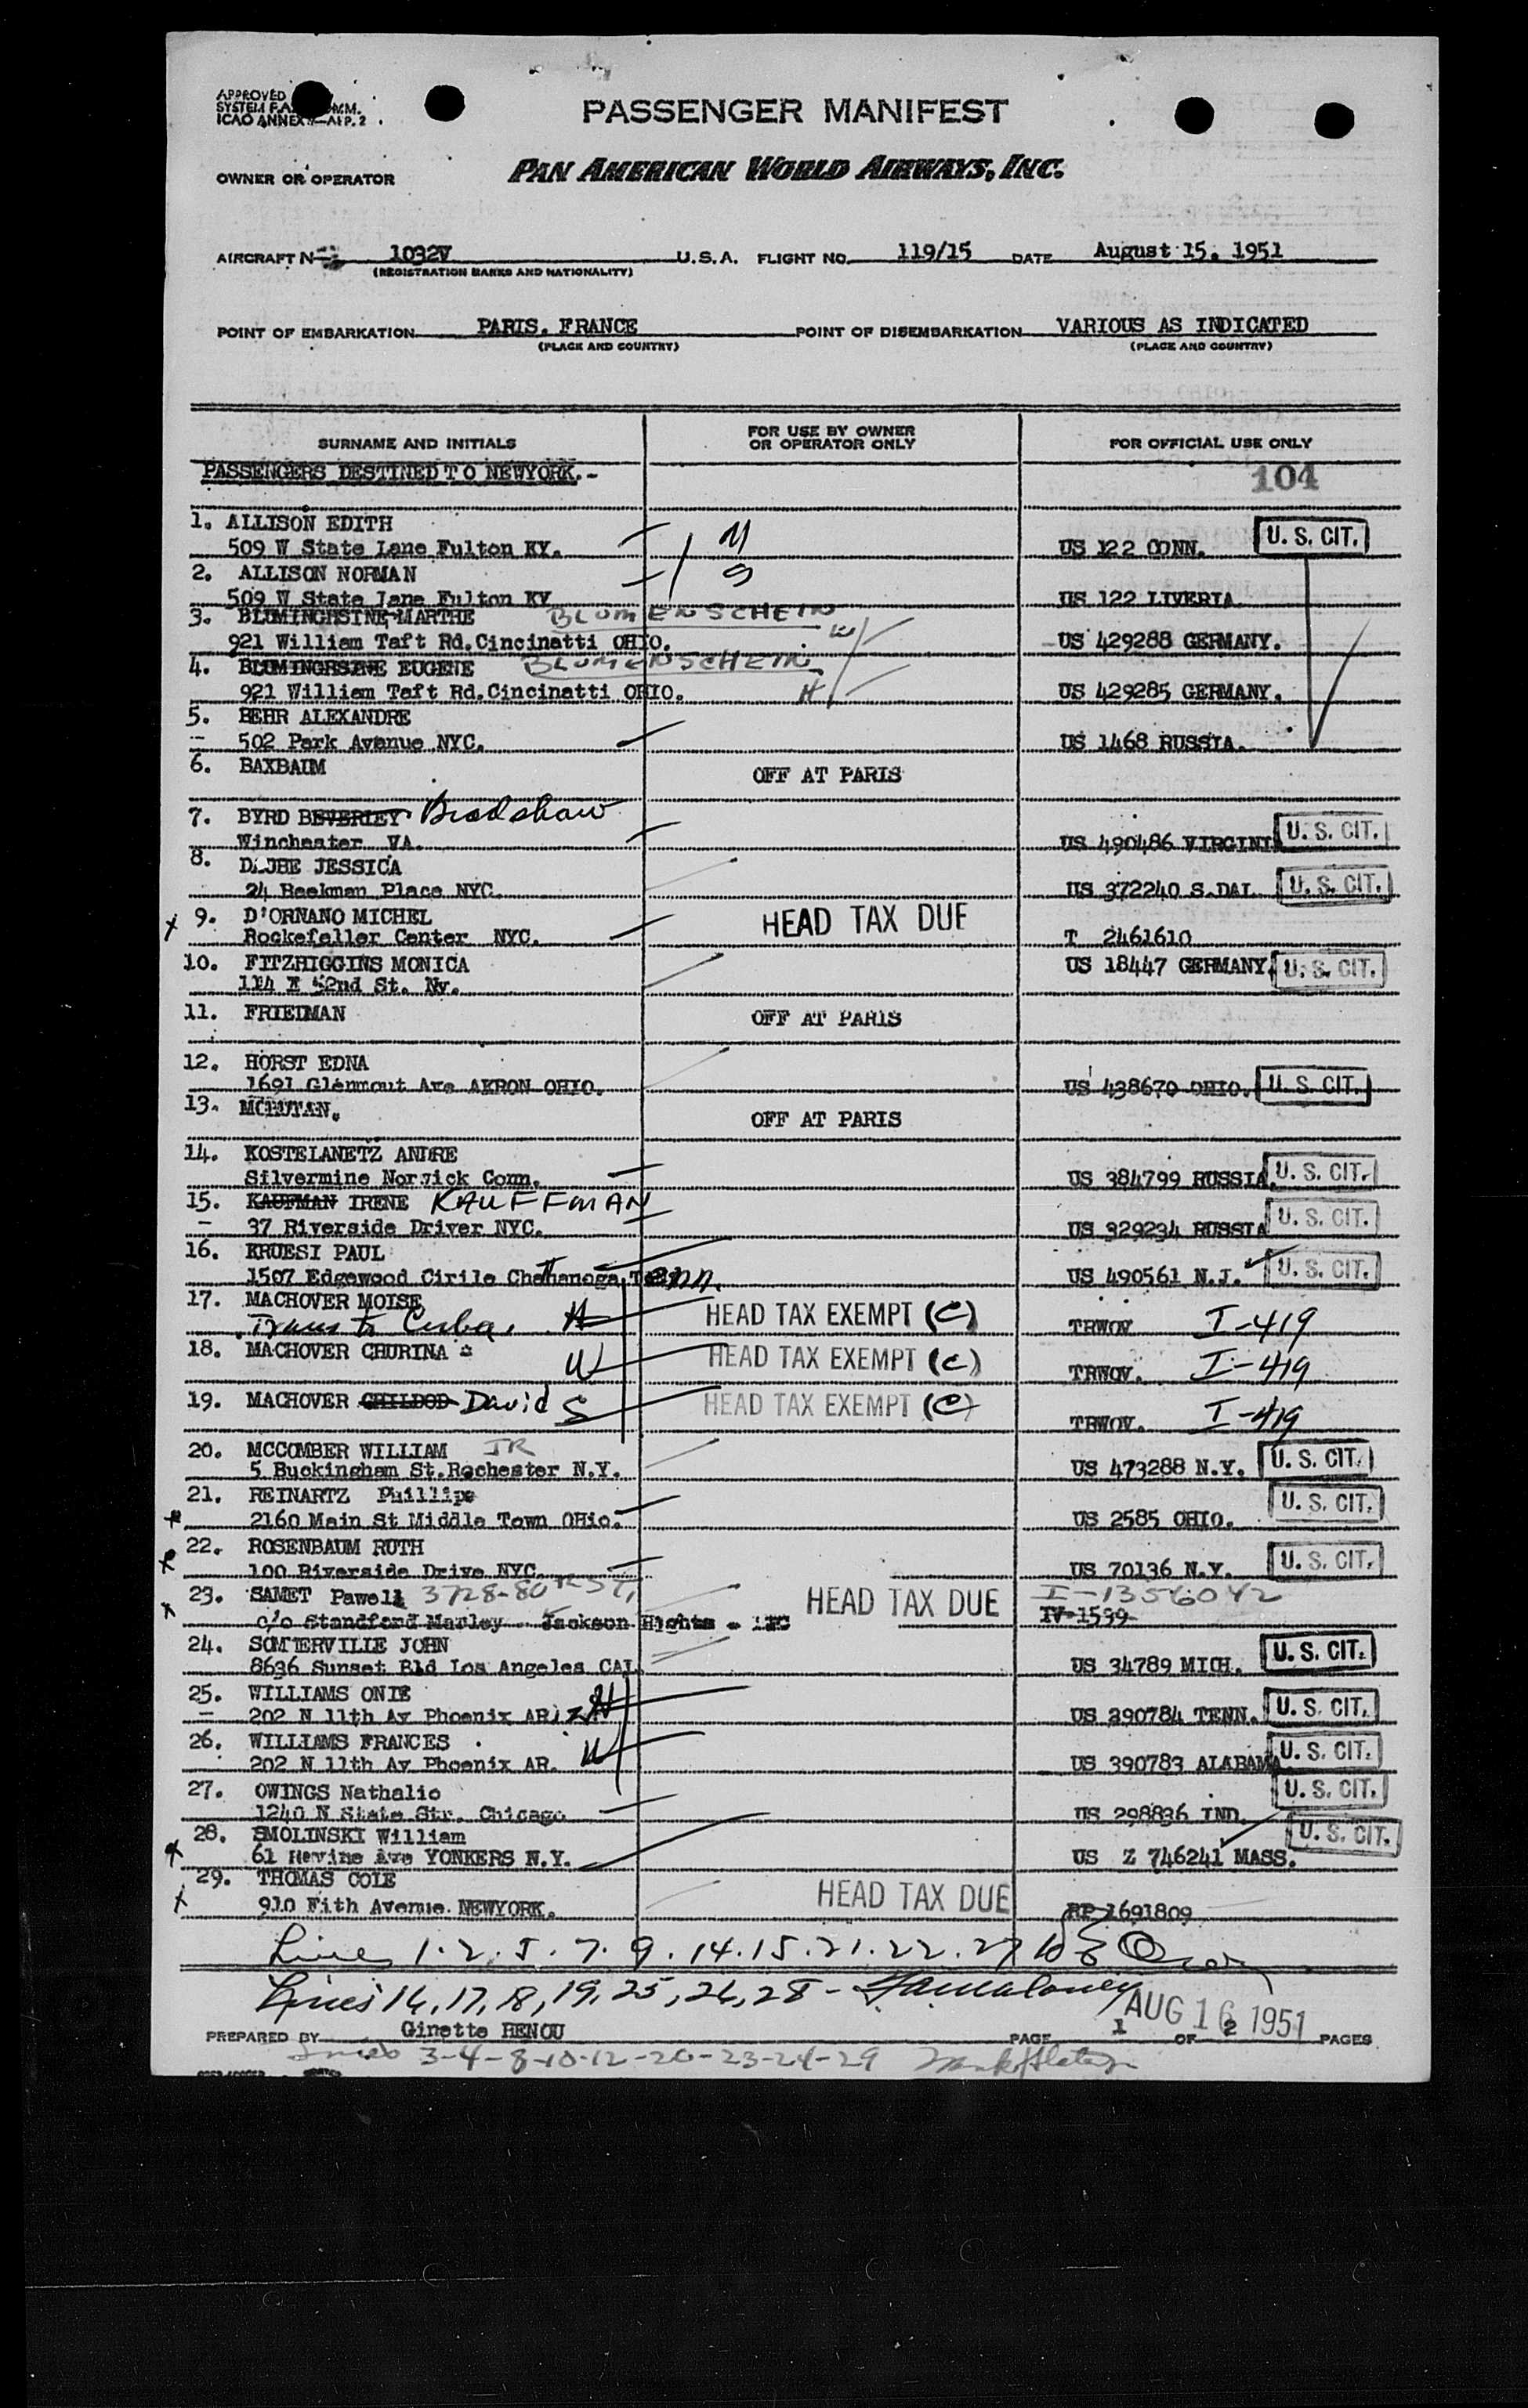 APPROVED
SYSTEM F.A. COMM.
ICAO ANNEX 9—APP. 2
PASSENGER MANIFEST
PAN AMERICAN WORLD AIRWAYS, INC.
OWNER OR OPERATOR
AIRCRAFT N 1032V U.S.A. FLIGHT NO. 119/15 DATE August 15. 1951
(REGISTRATION MARKS AND NATIONALITY)
POINT OF EMBARKATION PARIS. FRANCE POINT OF DISEMBARKATION VARIOUS AS INDICATED
(PLACE AND COUNTRY) (PLACE AND COUNTRY)
SURNAME AND INITIALS FOR USE BY OWNER OR OPERATOR ONLY FOR OFFICIAL USE ONLY
PASSENGERS DESTINED TO NEWYORK.- 104
1. ALLISON EDITH M
509 W State Lane Fulton KY. US 122 CONN. U. S. CIT.
2. ALLISON NORMAN S
509 W State Lane Fulton KY US 122 LIVERIA
3. BLUMINGHSINE MARTHE BLUMENSCHEIN
921 William Taft Rd.Cincinatti OHIO. W US 429288 GERMANY.
4. EUGENE BLUMENSCHEIN
921 William Taft Rd.Cincinatti OHIO. H US 429285 GERMANY.
5. BEHR ALEXANDRE
502 Park Avenue NYC. US 1468 RUSSIA.
6. BAXBAUM OFF AT PARIS
7. BYRD BEVERLEY Bradshaw
Winchester VA. US 490486 VIRGINIA U. S. CIT.
8. DAUBE JESSICA
24 Beekman Place NYC US 372240 S.DAI. U. S. CIT.
x 9. D'ORNANO MICHEL HEAD TAX DUE
Rockefeller Center NYC. T 2461610
10. FITZHIGGINS MONICA US 18447 GERMANY. U. S. CIT.
114 E 52nd St. Ny.
11. FRIEDMAN OFF AT PARIS
12. HORST EDNA
1691 Glenmout Ave AKRON OHIO. US 438670 OHIO. U. S. CIT.
13. OFF AT PARIS
14. KOSTELANETZ ANDRE
Silvermine Norwick Conn. US 384799 RUSSIA. U. S. CIT.
15. KAUFMAN IRENE KAUFFMAN
37 Riverside Driver NYC. US 329234 RUSSIA U. S. CIT.
16. KRUESI PAUL
1507 Edgewood Cirile Chattanoga Tenn. US 490561 N.J. U. S. CIT.
17. MACHOVER MOISE HEAD TAX EXEMPT (C)
Trans to Cuba H TRWOV I-419
18. MACHOVER CHURINA W HEAD TAX EXEMPT (C) TRWOV. I-419
19. MACHOVER CHILDOD David S HEAD TAX EXEMPT (C) TRWOV. I-419
20. MCCOMBER WILLIAM JR
5 Buckingham St.Rochester N.Y. US 473288 N.Y. U. S. CIT.
21. REINARTZ Phillipe
x 2160 Main St Middle Town OHio. US 2585 OHIO. U. S. CIT.
22. ROSENBAUM RUTH
x 100 Riverside Drive NYC US 70136 N.Y. U. S. CIT.
23. SAMET Pawell 3728-80th ST, HEAD TAX DUE I-1356042
x c/o Standford Marley Jackson Hights IV-1599
24. SOMERVILLE JOHN
8636 Sunset Bld Los Angeles CAL US 34789 MICH. U. S. CIT.
25. WILLIAMS ONIE
202 N 11th Av Phoenix ARIZ. H US 390784 TENN. U. S. CIT.
26. WILLIAMS FRANCES W
202 N 11th Av Phoenix AR. US 390783 ALABAMA U. S. CIT.
27. OWINGS Nathalie
1240 N State Str. Chicago US 298836 IND. U. S. CIT.
28. SMOLINSKI William
x 61 Ave YONKERS N.Y. US Z 746241 MASS. U. S. CIT.
29. THOMAS COLE HEAD TAX DUE
x 910 Fith Avenue. NEWYORK. RP 1691809
Lines 1.2.5.7.9.14.15.21.22.27
Lines 16,17,18,19,25,26,28 -
AUG 16 1951
PREPARED BY Ginette RENOU PAGE 1 OF 2 PAGES
Lines 3-4-8-10-12-20-23-24-29